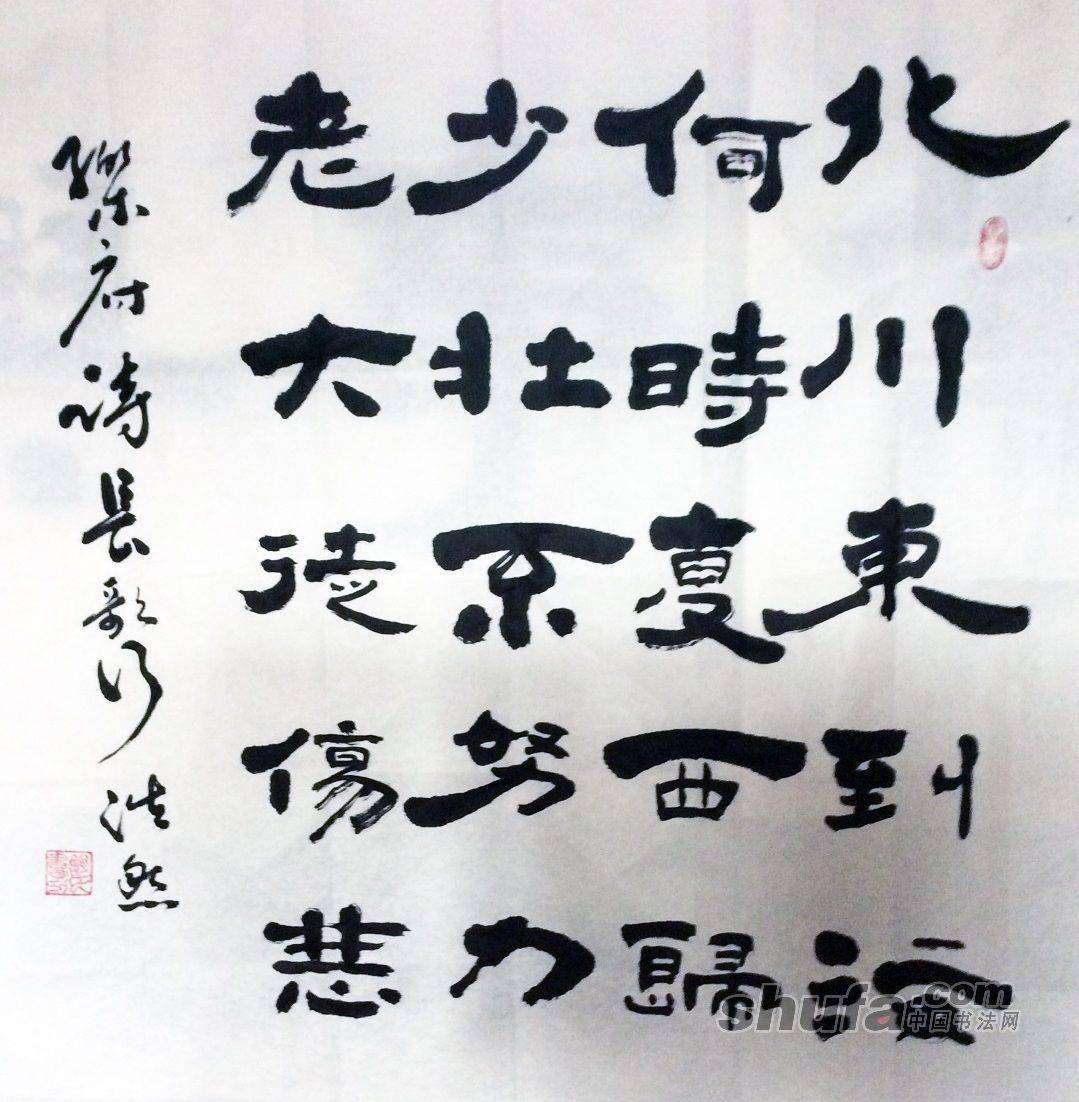 北川東到海
何時复西歸
少壯不努力
老大徒傷悲
樂府詩長歌行 浩然
shufa.com
中国书法网